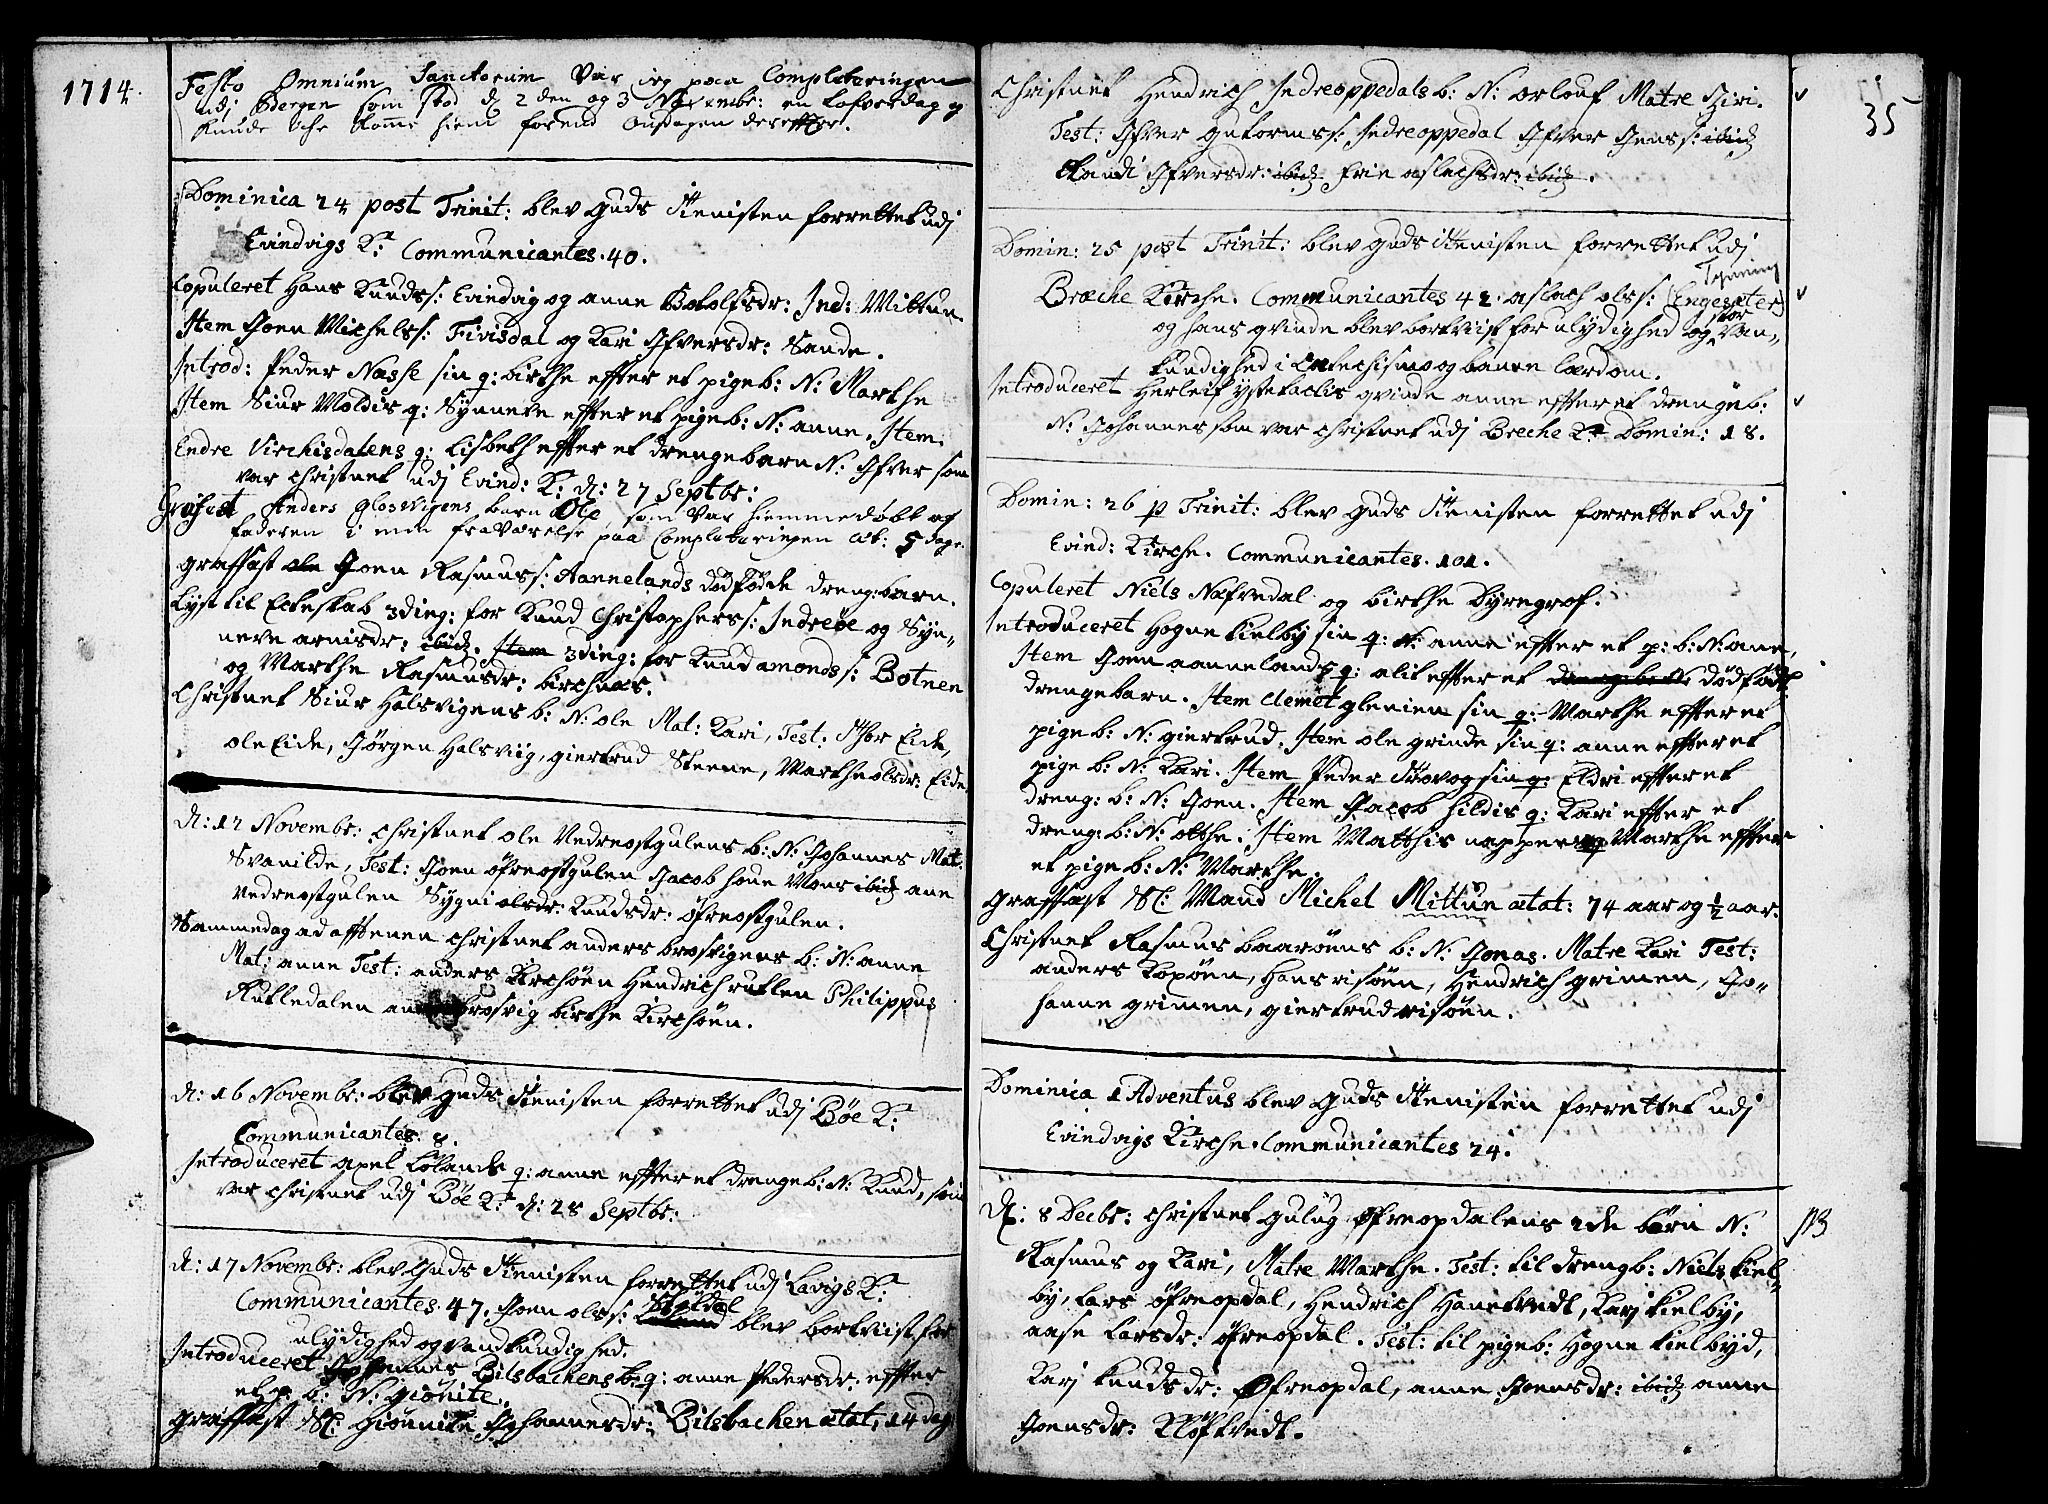 1714.
Festo Omnium Sanctorum Var jeg paa Complateringen
udj Bergen som stod d. 2den og 3 Novembr: en Løfverdag og
kunde iche komme hiem forend Onsdagen derefter.
Dominica 24 post Trinit: blev Guds Tienisten forrettet udj
Evindvigs K: Communicantes. 40.
Copuleret Hans Knuds: Evindvig og anne Botolfsdr: Ind: Mittun.
Item Joen Michels: Fivisdal og Kari Ifversdr: Sande.
Introd: Peder Næsse sin q: birthe effter et pigeb: N: Marthe
Item Siur Moldis q: Synneve effter et pigeb: N: anne. Item
Endre Virchisdalens q: Lisbeth effter et drengebarn N: Ifver som
var christnet udj Evind: K: d: 27 Septbr:
Grafæst Anders Glosvigens barn Ole, som var hiemmedøbt af
faderen i min fraværelse paa Complateringen æt: 5 dage.
Graffæst ole Joen Rasmuss: Aannelands dødfødde dreng:barn.
Lyst til Ecteskab 3ding: for Knud Christophers: Indreøe og Syn-
neve arnisdr: ibid. Item 3ding: for Knud amonds: Botnen
og Marthe Rasmusdr: birchnæs.
Christnet Siur Halsvigens b: N: ole Mat: Kari, Test: Thor Eide,
ole Eide, Jørgen Halsviig, giertrud Steene, Marthe olsdr: Eide.
d: 12 Novembr: christnet ole Nedreostgulens b: N: Johannes Mat:
Svanilde, Test: Joen øfreostgulen Jacob houe Mons ibid ane
Nedreostgulen Sygni olsdr: Knudsdr: øfreostgulen.
Sammedag ad afftenen christnet anders brosvigens b: N: anne
Mat: anne Test: anders Kirchøen Hendrich rutlen Philippus
Rutledalen brosvig birthe Kirchøen.
d: 16 Novembr: blev Guds Tienisten forrettet udj Bøe K:
Communicantes: 8.
Introduceret Axel Lølands q: anne effter et drengeb: N: Knud, som
var christnet udj Bøe K: d: 28 Septbr:
d: 17 Novembr: blev Guds Tienisten forrettet udj Lavigs K:
Communicantes. 47. Joen ols: blev bortviist for
ulydighed og vandkundighed.
Introduceret Johannes Bilsbachens q: anne Pedersdr: effter
et p: b: N: Giønite.
Graffæst Sl: Giønnite Johannesdr: Bilsbachen ætat: 14 dag
35
Christnet Hendrich Indreoppedals b: N: orlouf Matre Siri.
Test: Ifver gutorms: Indreoppedal Ifver Jens: ibid
Randi Ifversdr: ibid Erie aslachsdr: ibid.
Domin: 25 post Trinit: blev Guds Tienisten forrettet udj
Tynning
Bræche Kirche. Communicantes 42. aslach ols: (Engesæter)
stor
og hans qvinde blev bortviist for ulydighed og Van-
kundighed i Catechismo og barne lærdom.
Introduceret Herleif ystetaclis qvinde anne effter et drengeb:
N: Johannes som var christnet udj Breche K: Domin: 18.
Domin: 26 p Trinit: blev Guds Tienisten forrettet udj
Evind: Kirche. Communicantes. 101.
Copuleret Niels Næfvedal og birthe Dyregrof.
Introduceret Hogne Kielby sin q: anne effter et p: b: N: ane,
Item Joen aannelands q: alit effter et dødfødt
drengebarn. Item Clemet glenien sin q: Marthe effter et
pige b: N: giertrud. Item ole grinde sin q: anne effter et
pige b: N: Kari. Item Peder Søvog sin q: Eldri effter et
dreng: b: N: Joen. Item Jacob Hildis q: Kari effter et
dreng: b: N: otthe. Item Matthis nappen q Marthe effter
et pige b: N: Marthe.
Graffæst Sl: Mand Michel Mittun ætat: 74 aar og ½ aar.
Christnet Rasmus baarøens b: N: Jonas. Matre Kari Test:
anders Koxøen, Hans risøen, Hendrich grimen, Jo-
hanne grimen, giertrud risøen.
Dominica 1 Adventus blev Guds Tienisten forrettet udj
Evindvigs Kirche. Communicantes 24.
d: 8 Decbr: christnet gulug øfreopdalens 2de børn N:
Rasmus og Kari, Matre Marthe. Test: til drengb: Niels Kiel-
by, Lars øfreopdal, Hendrich Hanetvedt, Karj Kielby,
aase Larsdr: øfreopdal. Test: til pigeb: Hogne Kielbyd,
Karj Knudsdr: øfreopdal, anne Joensdr: ibid anne
Joensdr: Kløftvedt.
NB